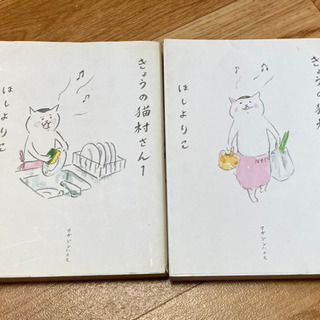 きょうの猫村さん1
ほしよりこ
マガジンハウス
きょうの猫
ほしよりこ
マガジンハウス